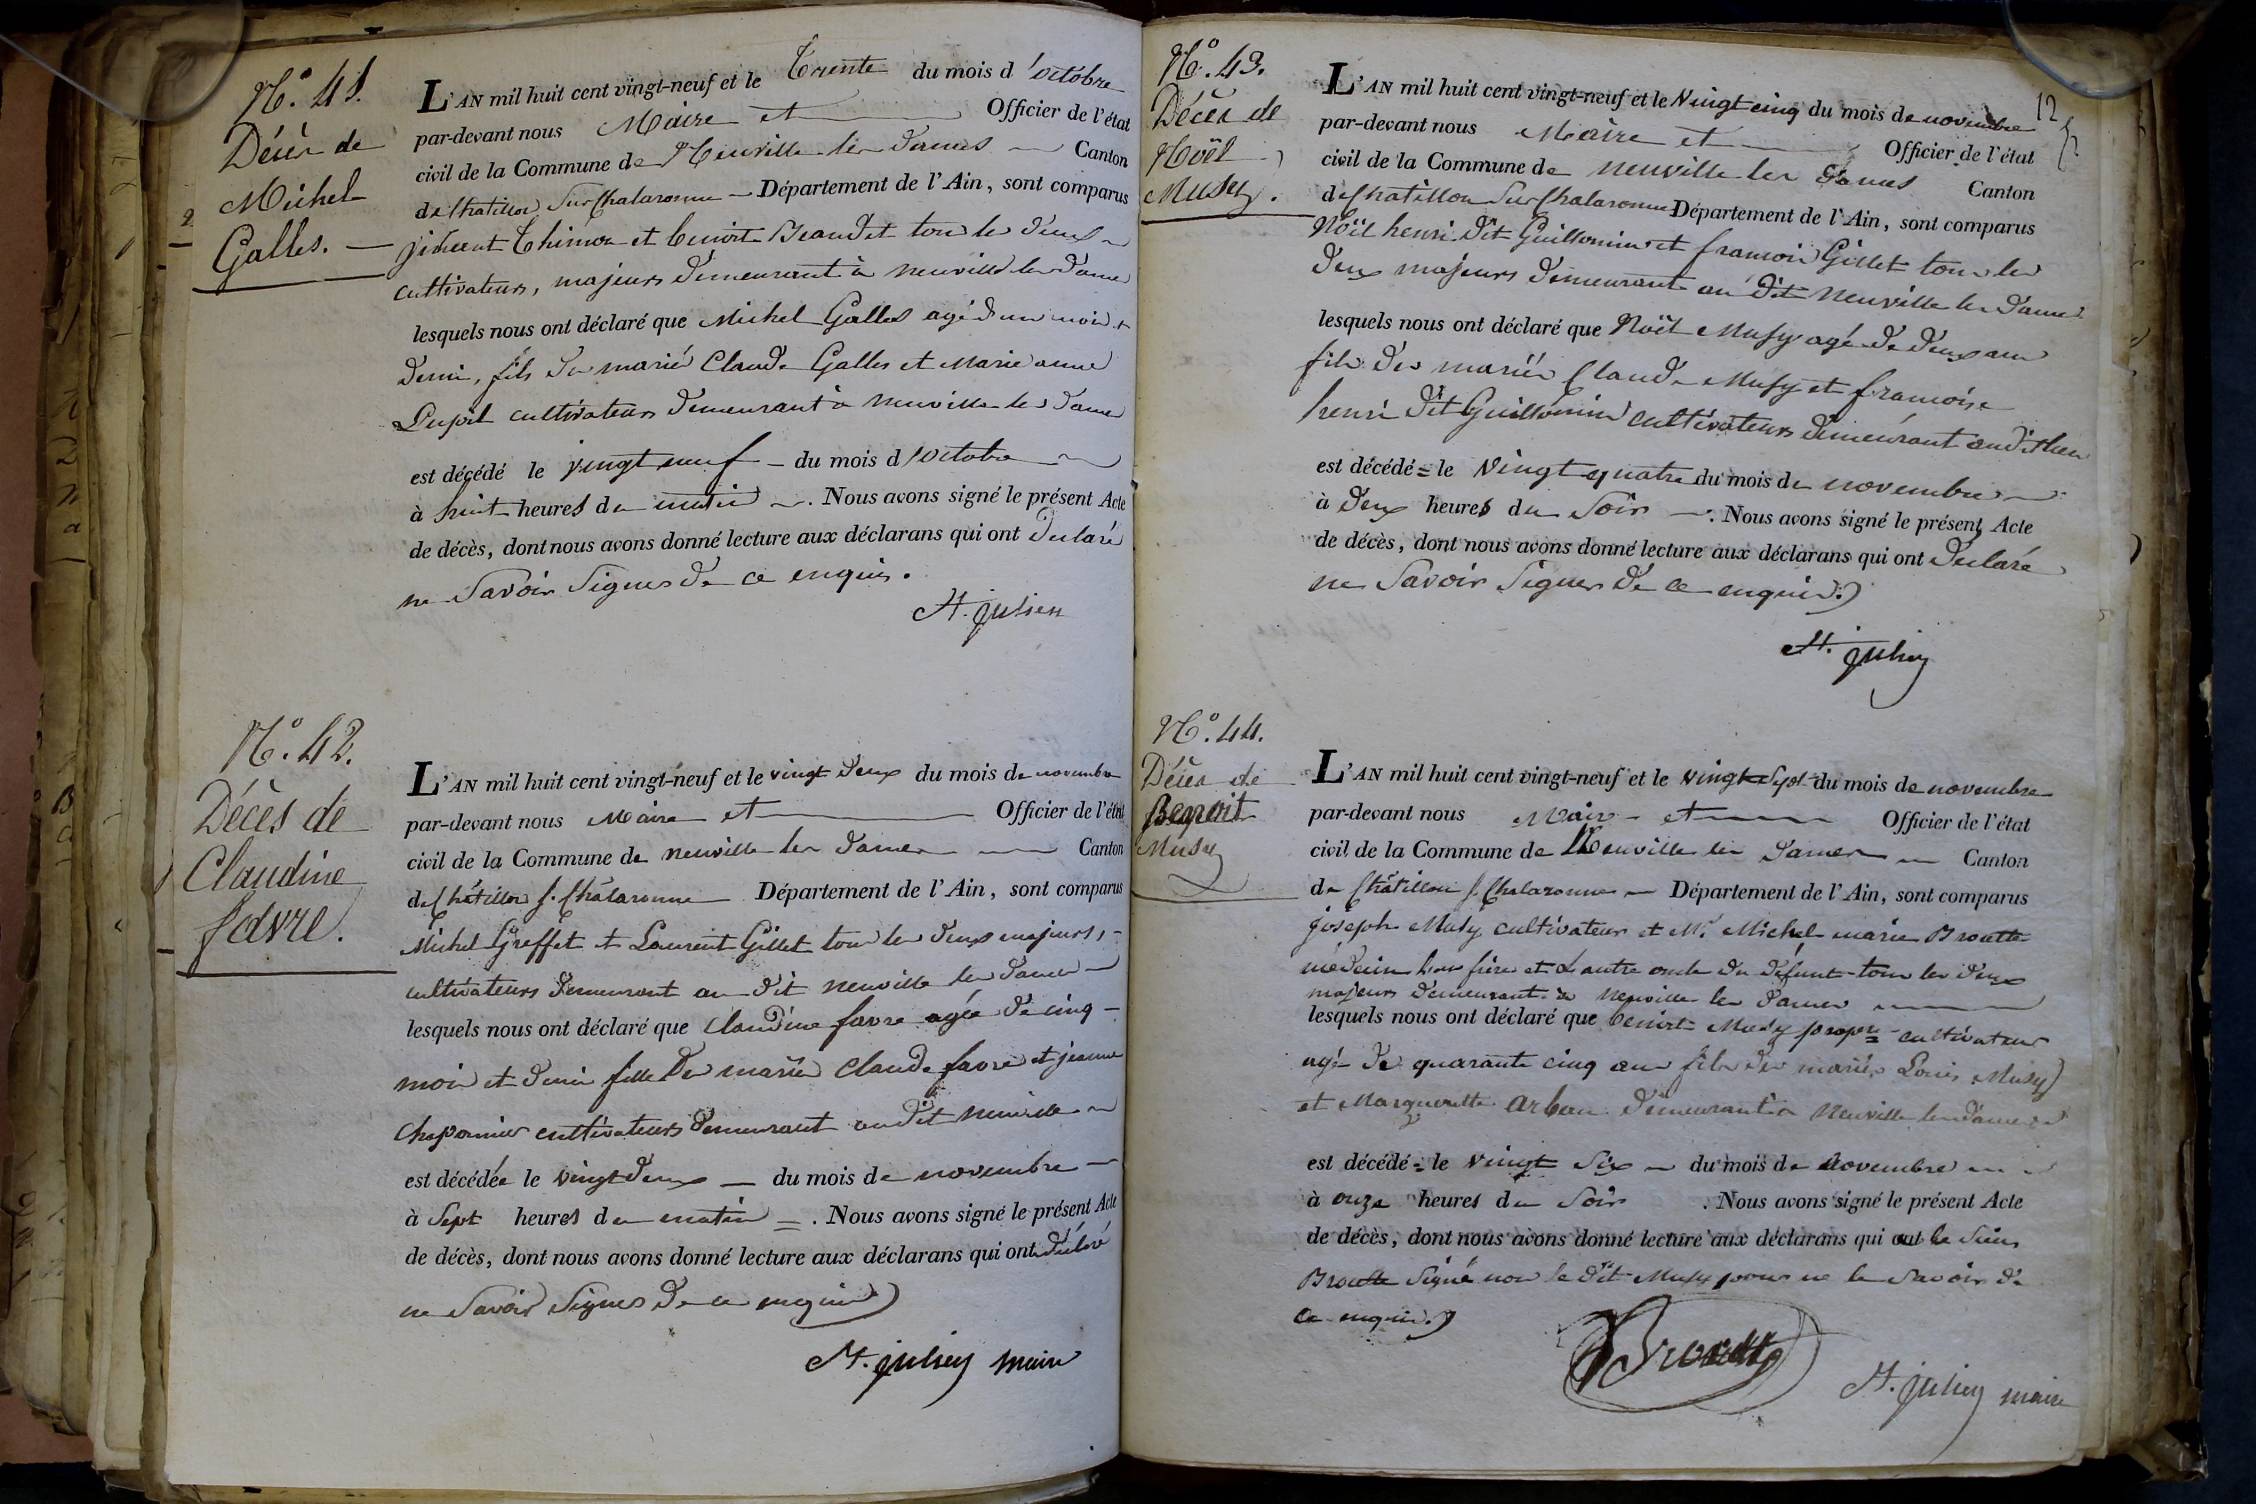 N.º 41.
Décès de
Michel
Galles.
L'AN mil huit cent vingt-neuf et le Trente du mois d'octobre
par-devant nous Maire et Officier de l'état
civil de la Commune de Neuville les dames Canton
de Chatillon Sur Chalaronne Département de l'Ain, sont comparus
Thimon et benoit Beaudet tous les deux
cultivateurs, majeurs demeurant à neuville les dames
lesquels nous ont déclaré que Michel Galles agé d'un mois et
demi, fils des mariés Claude Galles et Marie anne
cultivateurs demeurant à neuville les dames
est décédé le vingt neuf du mois d'octobre
à huit heures du matin. Nous avons signé le présent Acte
de décès, dont nous avons donné lecture aux déclarans qui ont déclaré
ne savoir signer de ce enquis.
St. julien
N.º 42.
Décès de
Claudine
favre.
L'AN mil huit cent vingt-neuf et le vingt deux du mois de novembre
par-devant nous Maire et Officier de l'état
civil de la Commune de neuville les dames Canton
de Châtillon s. Châlaronne Département de l'Ain, sont comparus
Michel Greffet et Laurent Gillet tous les deux majeurs,
cultivateurs demeurant au dit neuville les dames
lesquels nous ont déclaré que Claudine favre agée de cinq
mois et demi fille des mariés Claude favre et jeanne
Chaponnier cultivateurs demeurant au dit neuville
est décédée le vingt deux du mois de novembre
à sept heures du matin. Nous avons signé le présent Acte
de décès, dont nous avons donné lecture aux déclarans qui ont déclaré
ne savoir signer de ce enquis
St. julien maire
12
N.º 43.
Décès de
Noël
Musy.
L'AN mil huit cent vingt-neuf et le Vingt cinq du mois de novembre
par-devant nous Maire et Officier de l'état
civil de la Commune de neuville les dames Canton
de Chatillon Sur Chalaronne Département de l'Ain, sont comparus
Noël henri dit Guillomin et francois Gillet tous les
deux majeurs demeurant au dit neuville les dames
lesquels nous ont déclaré que Noël Musy agé de deux ans
fils des mariés Claude Musy et francoise
henri dit Guillomin cultivateurs demeurant audit lieu
est décédé le Vingt quatre du mois de novembre
à deux heures du Soir. Nous avons signé le présent Acte
de décès, dont nous avons donné lecture aux déclarans qui ont déclaré
ne savoir signer de ce enquis.
St. julien
N.º 44.
Décès de
Benoit
Musy
L'AN mil huit cent vingt-neuf et le vingt Sept du mois de novembre
par-devant nous Maire et Officier de l'état
civil de la Commune de Neuville les dames Canton
de Châtillon s. Chalaronne Département de l'Ain, sont comparus
joseph Musy cultivateur et Mr. Michel marie Brouette
médecin l'un frère et l'autre oncle du défunt tous les deux
majeurs demeurant à Neuville les dames
lesquels nous ont déclaré que benoit Musy propre cultivateur
agé de quarante cinq ans fils des mariés Louis Musy
et Marguerette Arban demeurant à Neuville les dames
est décédé le vingt Six du mois de Novembre
à onze heures du Soir. Nous avons signé le présent Acte
de décès, dont nous avons donné lecture aux déclarans qui ont le sieur
Brouette signé non le dit Musy pour ne le savoir de
ce enquis.
Brouette
St. julien maire